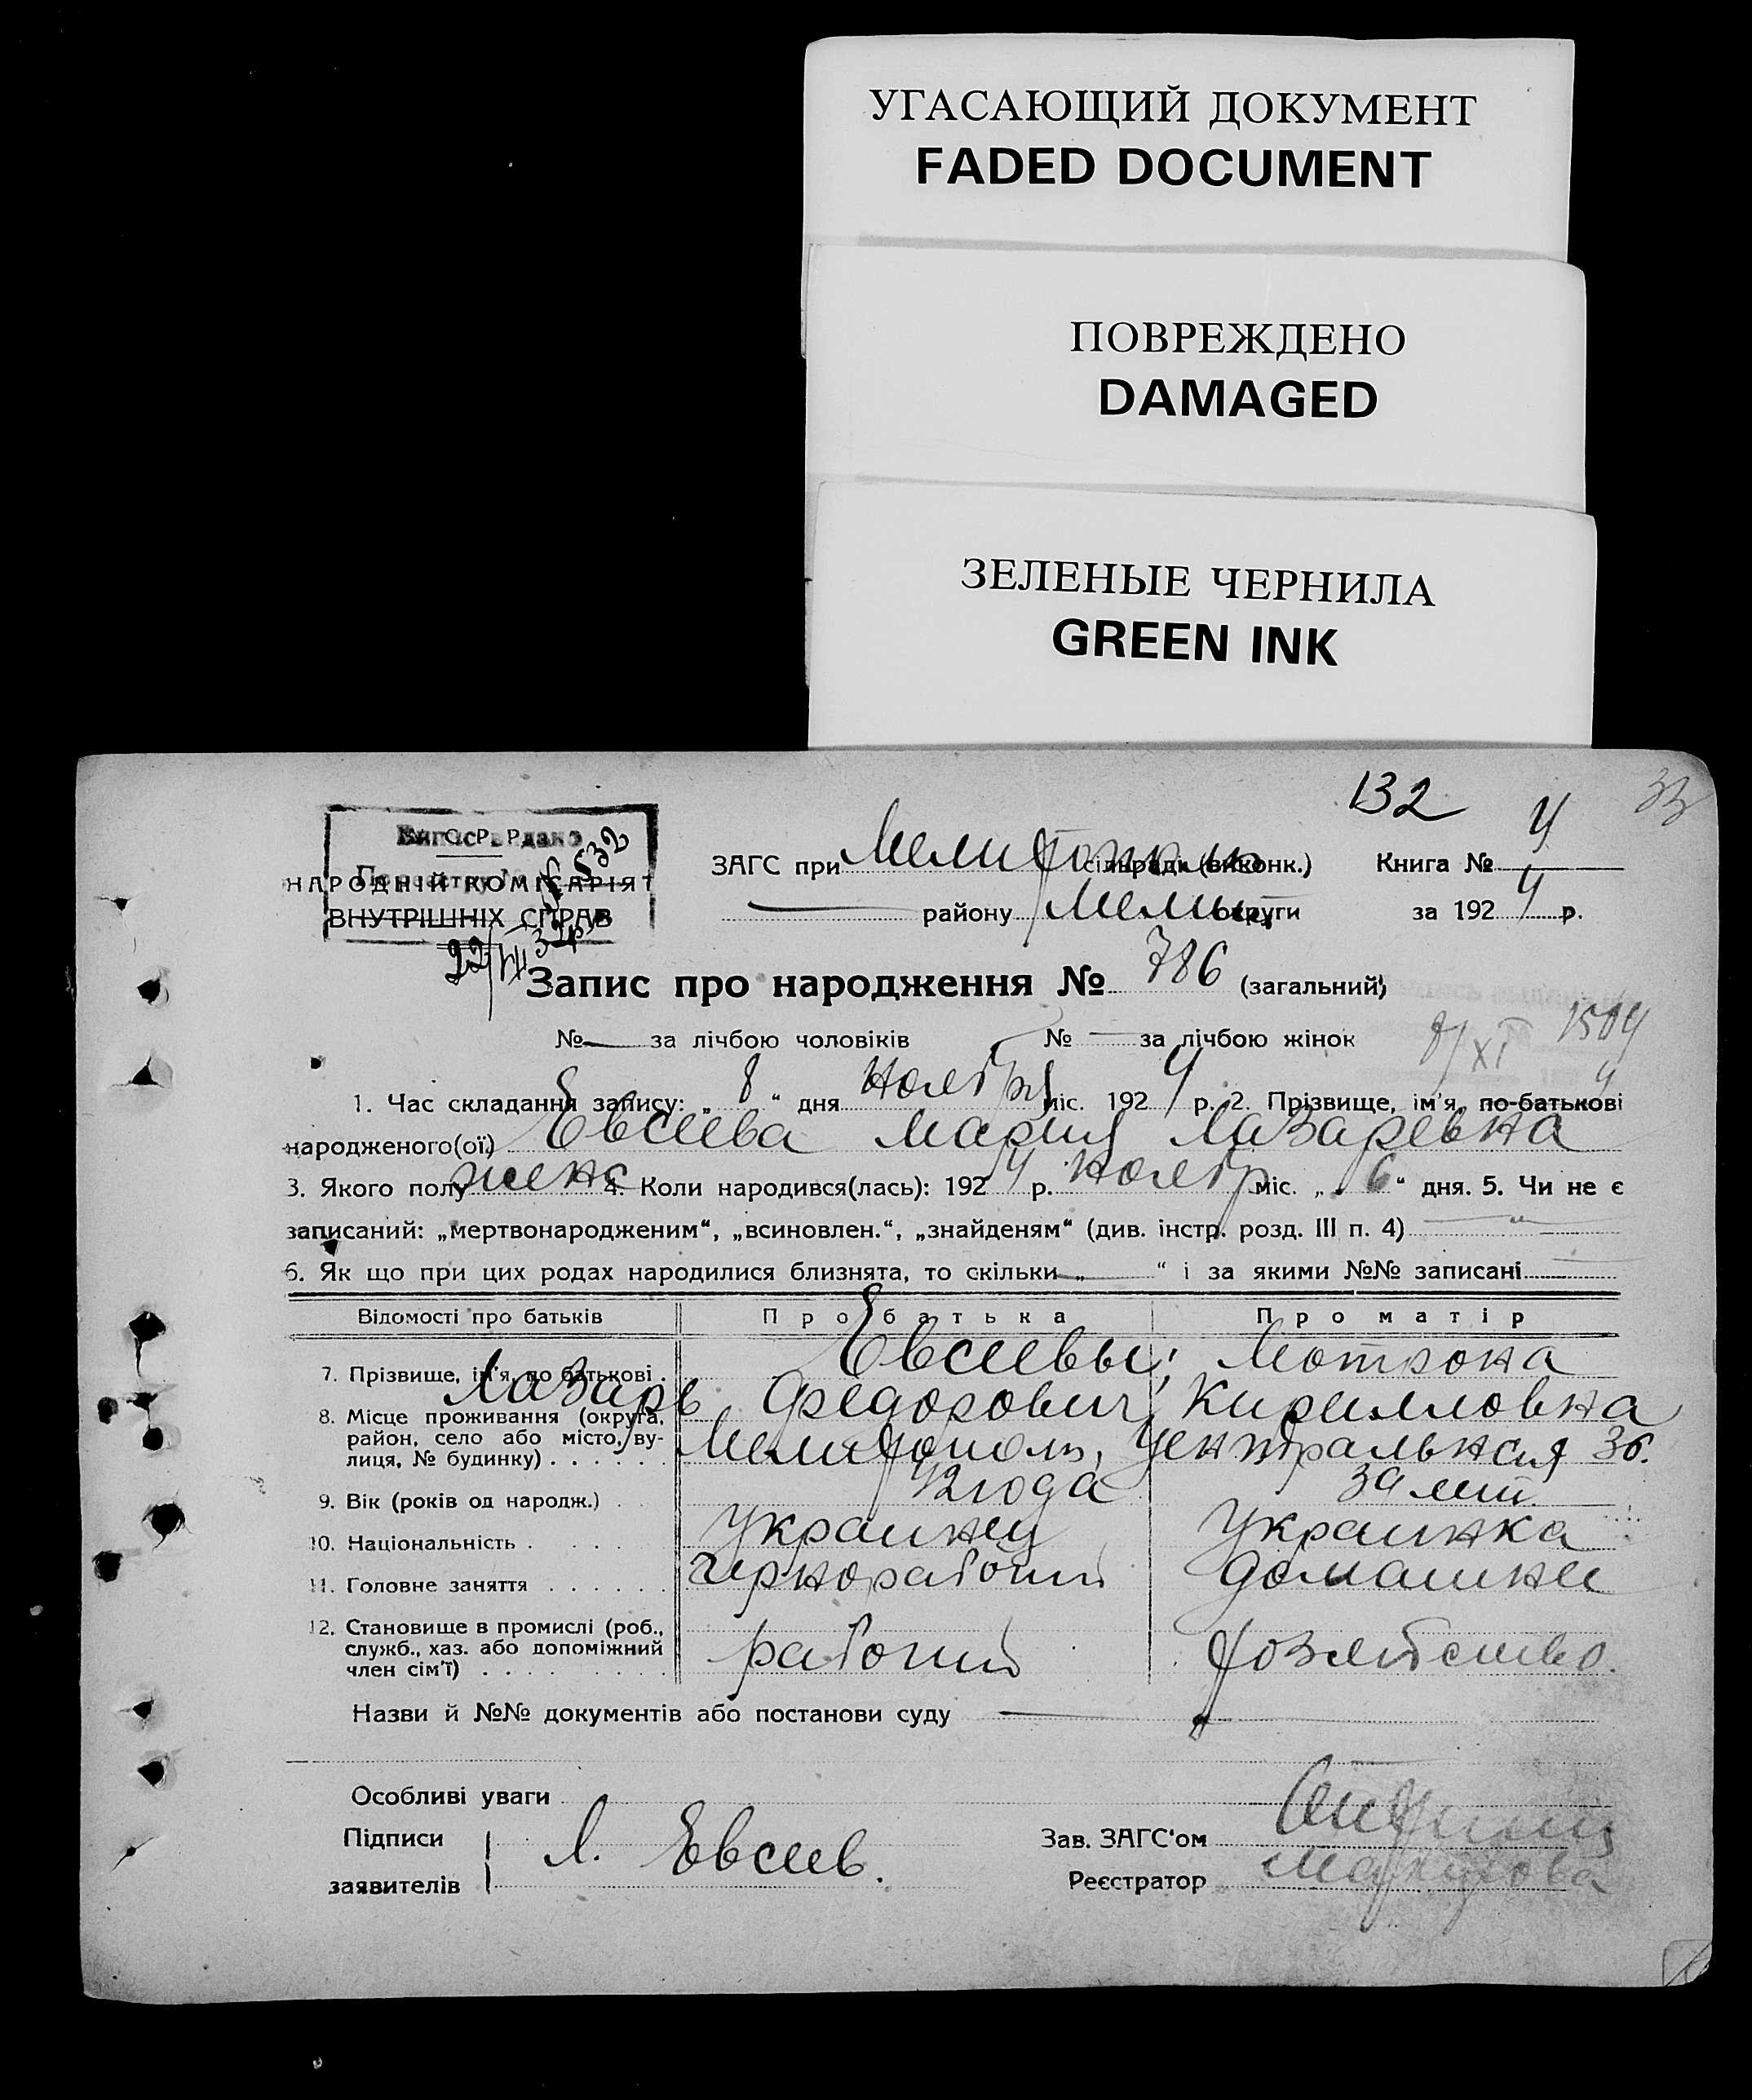 УГАСАЮЩИЙ ДОКУМЕНТ
FADED DOCUMENT
ПОВРЕЖДЕНО
DAMAGED
ЗЕЛЕНЫЕ ЧЕРНИЛА
GREEN INK
132 33
НАРОДНІЙ КОМІСАРІЯТ
ВНУТРІШНІХ СПРАВ
ЗАГС при Мелитополь сільраді (виконк.) Книга № 4
району Мелит округи за 1924 р.
Запис про народження № 786 (загальний)
№ за лічбою чоловіків № за лічбою жінок
8/XI 1504
1. Час складання запису: „ 8 “ дня Ноября міс. 1924 р. 2. Прізвище, ім'я, по-батькові
народженого(ої) Евсеева Мария Лазаревна
3. Якого полу женс 4. Коли народився(лась): 1924 р. Ноябр міс. „ 6 “ дня. 5. Чи не є
записаний: „мертвонародженим“, „всиновлен.“, „знайденям“ (див. інстр. розд. III п. 4)
6. Як що при цих родах народилися близнята, то скільки „ “ і за якими №№ записані
Відомості про батьків Про батька Про матір
7. Прізвище, ім'я, по батькові . Евсеевы; Мотрона
Лазарь Федорович Кирилловна
8. Місце проживання (округа,
район, село або місто, вулиця, № будинку) . . . . . . Мелитополь, Центральная 36.
9. Вік (років од народж.) . . 42 года 39 лет.
10. Національність . . . . Украинец Украинка
11. Головне заняття . . . . . . Чернорабочий Домашнее
12. Становище в промислі (роб.,
служб., хаз. або допоміжний
член сім'ї) . . . . . . . . рабочий хозяйство.
Назви й №№ документів або постанови суду
Особливі уваги
Підписи
заявителів Л. Евсеев.
Зав. ЗАГС'ом
Реєстратор